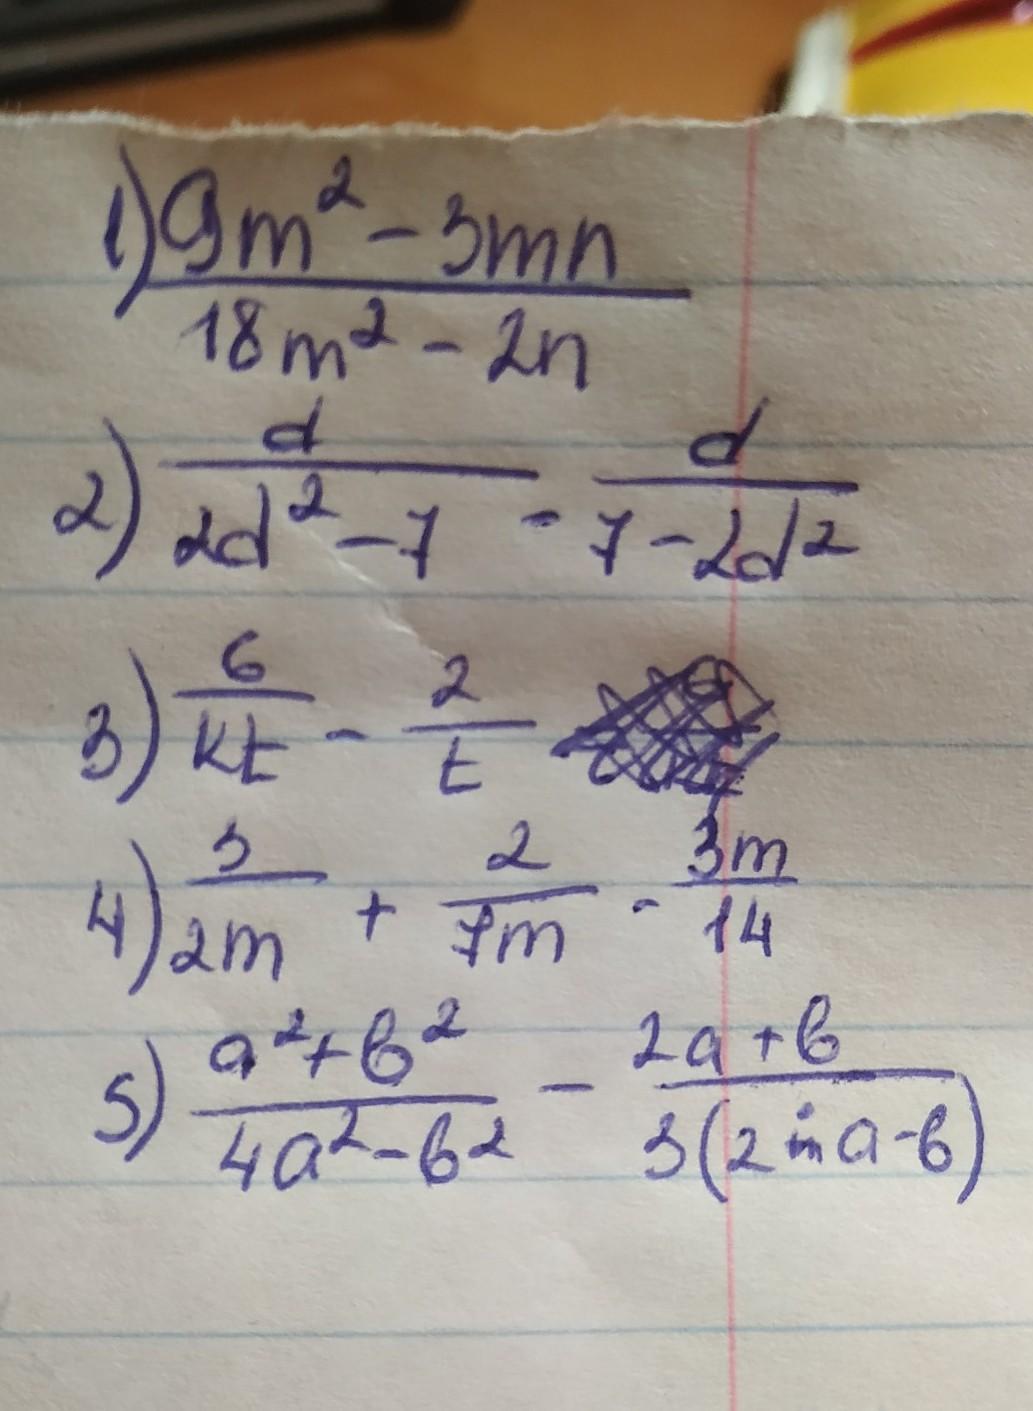 1) (9m² - 3mn)/(18m² - 2n)
2) d/(2d² - 7) - d/(7 - 2d²)
3) 6/kt - 2/t
4) 5/2m + 2/7m - 3m/14
5) (a² + b²)/(4a² - b²) - (2a + b)/(3(2a - b))